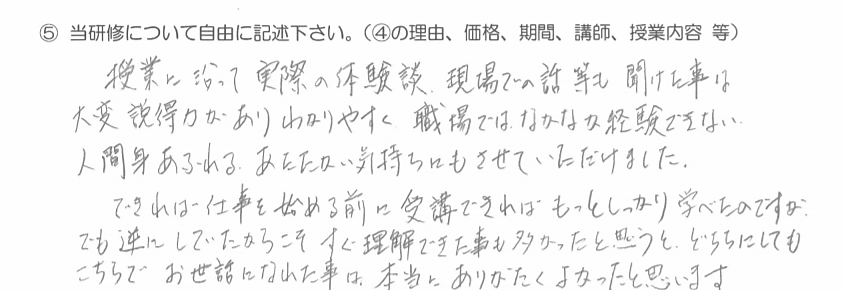 ⑤ 当研修について自由に記述下さい。（④の理由、価格、期間、講師、授業内容 等）
授業に沿って実際の体験談、現場での話等も聞けた事は
大変説得力がありわかりやすく、職場ではなかなか経験できない
人間身あふれる、あたたかい気持ちにもさせていただけました。
できれば仕事を始める前に受講できればもっとしっかり学べたのですが、
でも逆にしていたからこそすぐ理解できた事も多かったと思うと、どちらにしても
こちらでお世話になれた事は、本当にありがたくよかったと思います